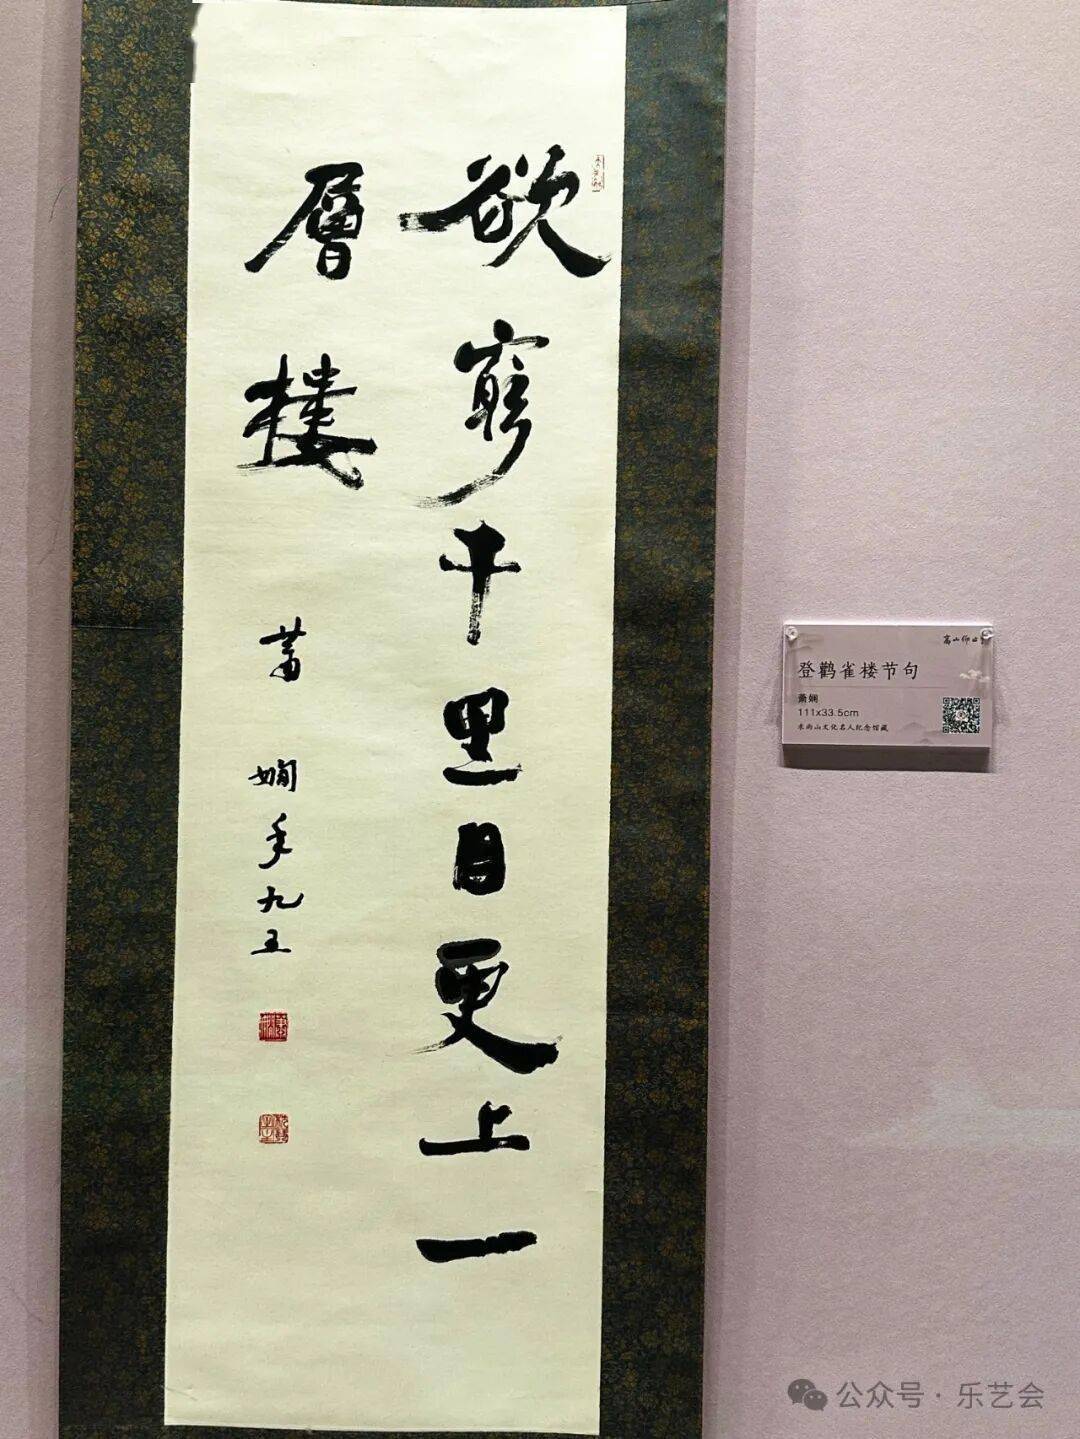 欲窮千里目更上一
層樓
蕭嫻年九五
高山仰止
登鹳雀楼节句
萧娴
111x33.5cm
求雨山文化名人纪念馆藏
公众号·乐艺会